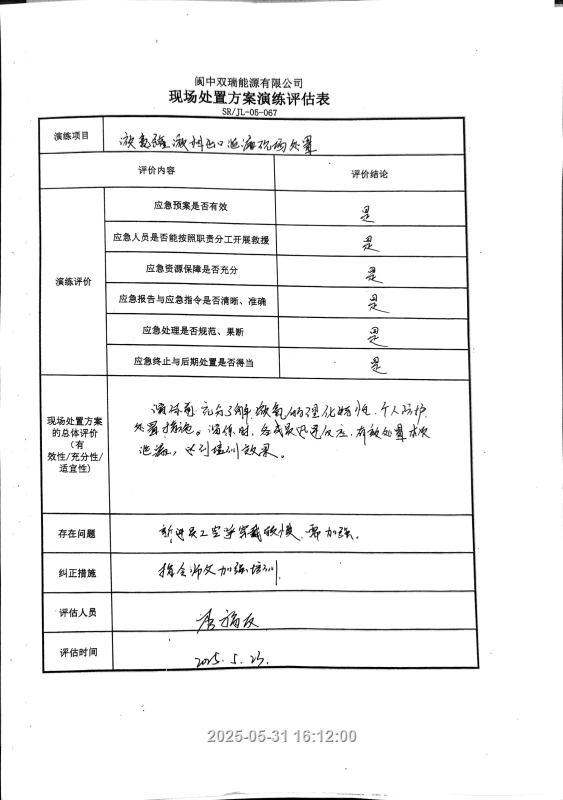 闽中双瑞能源有限公司
现场处置方案演练评估表
SR/JL-05-067
演练项目 液氨 泄漏现场处置
评价内容 评价结论
演练评价
应急预案是否有效 是
应急人员是否能按照职责分工开展救援 是
应急资源保障是否充分 是
应急报告与应急指令是否清晰、准确 是
应急处理是否规范、果断 是
应急终止与后期处置是否得当 是
现场处置方案
的总体评价
(有
效性/充分性/
适宜性)
演练前充分了解液氨的理化特性、个人防护、
处置措施。演练时,各成员迅速反应,有效处置本次
泄漏,达到培训效果。
存在问题 新进员工空呼穿戴较慢,需加强。
纠正措施 指令师父加强培训
评估人员
评估时间 2025.5.23.
2025-05-31 16:12:00